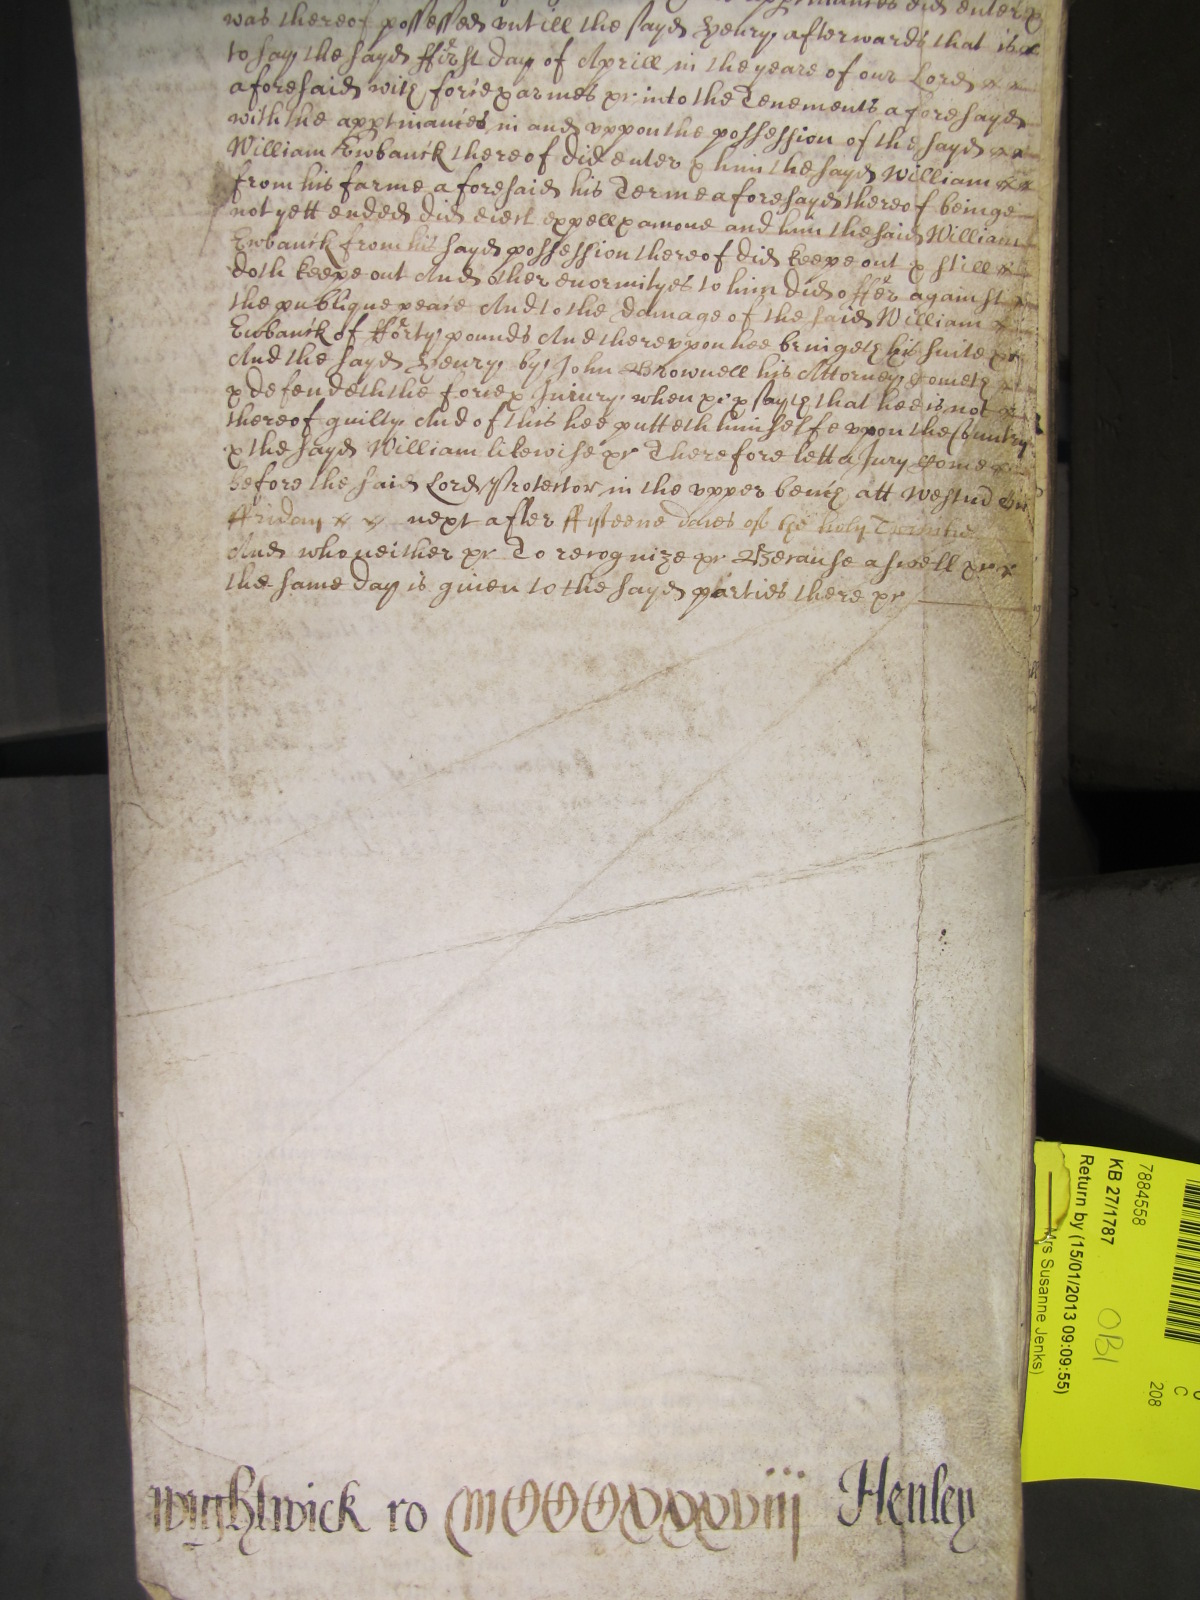 appurtinances did enter &
was thereof possessed untill the sayd Henry, afterwards that is
to say the sayd ffirst day of Aprill in the yeare of our Lord
aforesaid with force & armes &c into the Tenements aforesayd
with the apptinances in and uppon the possession of the sayd
William Ewbanck thereof did enter & him the sayd William
from his farme aforesaid his Terme aforesayd thereof beinge
not yett ended did eiect expell & amove and him the said William
Ewbanck from his sayd possession thereof did keepe out & still
doth keepe out And other enormityes to him did offer against
the publique peace And to the damage of the said William
Ewbanck of fforty pounds And thereuppon hee bringeth his suite &c
And the sayd Henry, by John Brownell his Attorney, cometh
& defendeth the force & Iniury when &c & sayth that hee is not
thereof guilty And of this hee putteth himselfe uppon the Country
& the sayd William likewise &c Therefore lett a Jury come
before the said Lord Protector in the upper bench att Westm̄ on
ffriday next after ffifteene daies of the holy Trinitie
And who neither &c To recognize &c Because aswell &c
the same day is given to the sayd parties there &c
Wightwick ro MCCCCXXXVIII Henley
7884558
KB 27/1787
Return by (15/01/2013 09:09:55)
Mrs Susanne Jenks)
OBI
208
C